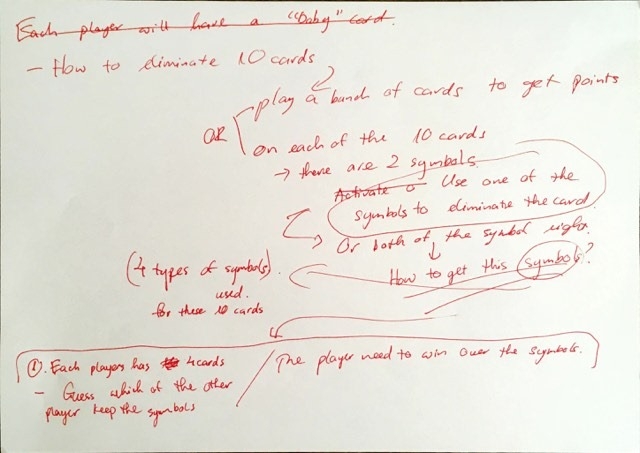 Each player will have a "Baby" card.
- How to eliminate 10 cards
play a bunch of cards to get points
OR
on each of the 10 cards
→ there are 2 symbols
Activate o Use one of the
symbols to eliminate the card.
Or both of the symbol
How to get this symbols?
(4 types of symbols).
used.
for these 10 cards
①. Each players has 4 cards
- Guess which of the other
player keep the symbols
The player need to win over the symbols.